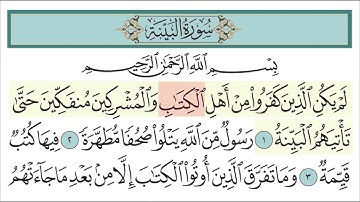 سُورَةُ البَيِّنَةِ
بِسْمِ ٱللَّهِ ٱلرَّحْمَٰنِ ٱلرَّحِيمِ
لَمْ يَكُنِ ٱلَّذِينَ كَفَرُوا۟ مِنْ أَهْلِ ٱلْكِتَٰبِ وَٱلْمُشْرِكِينَ مُنفَكِّينَ حَتَّىٰ
تَأْتِيَهُمُ ٱلْبَيِّنَةُ ١ رَسُولٌ مِّنَ ٱللَّهِ يَتْلُوا۟ صُحُفًا مُّطَهَّرَةً ٢ فِيهَا كُتُبٌ
قَيِّمَةٌ ٣ وَمَا تَفَرَّقَ ٱلَّذِينَ أُوتُوا۟ ٱلْكِتَٰبَ إِلَّا مِنۢ بَعْدِ مَا جَآءَتْهُمُ